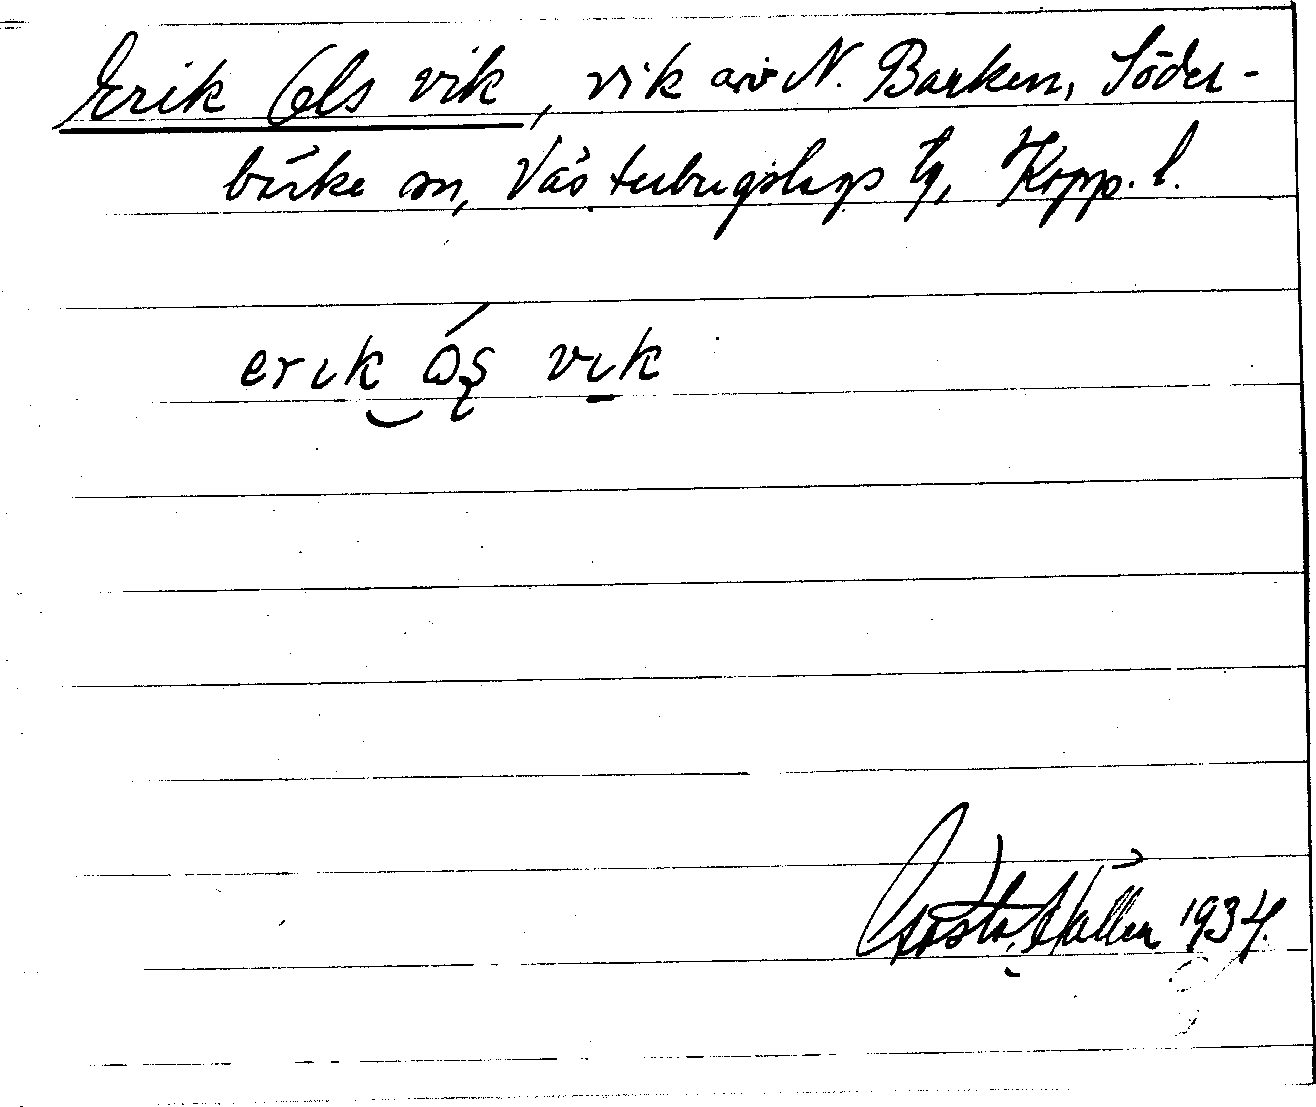 Erik Ols vik, vik av N. Barken, Söder-
bärke sn, Västerbergslags tg, Kopp. l.
erik ɷ́ʂ vık
Gösta Hallén 1934.